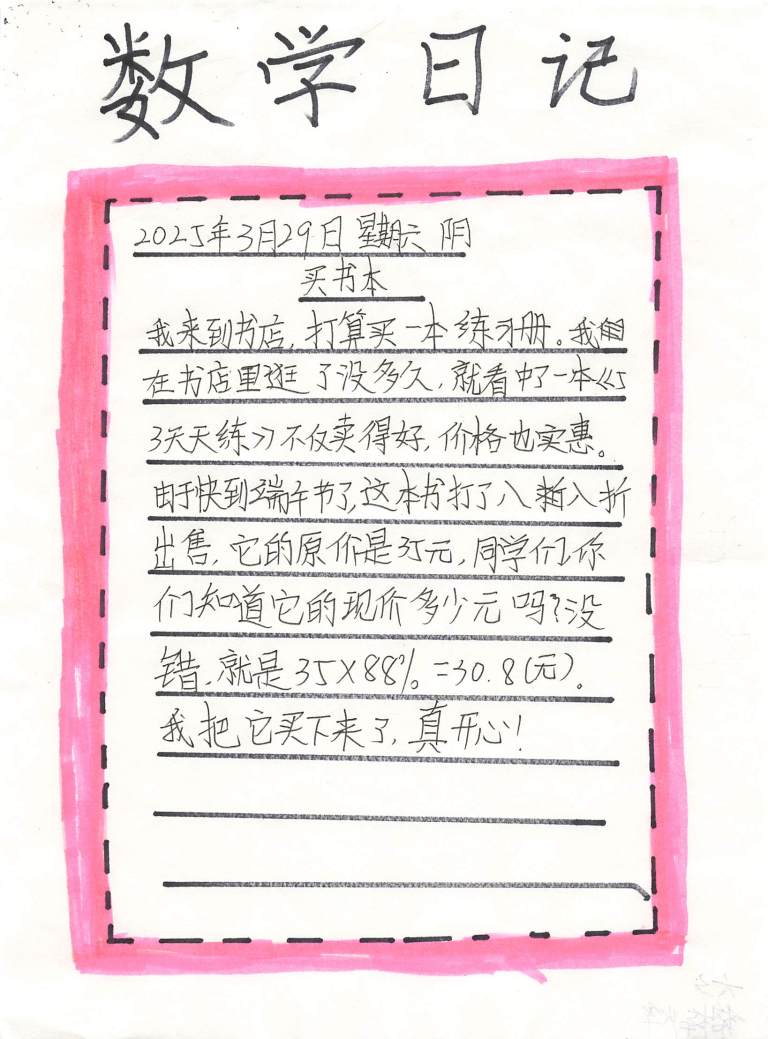 数学日记
2025年3月29日 星期六 阴
买书本
我来到书店，打算买一本练习册。我
在书店里逛了没多久，就看中了一本《5
3天天练》不仅卖得好，价格也实惠。
由于快到端午节了，这本书打了八八折
出售，它的原价是35元，同学们，你
们知道它的现价多少元吗？没
错，就是35×88%=30.8(元)。
我把它买下来了，真开心！